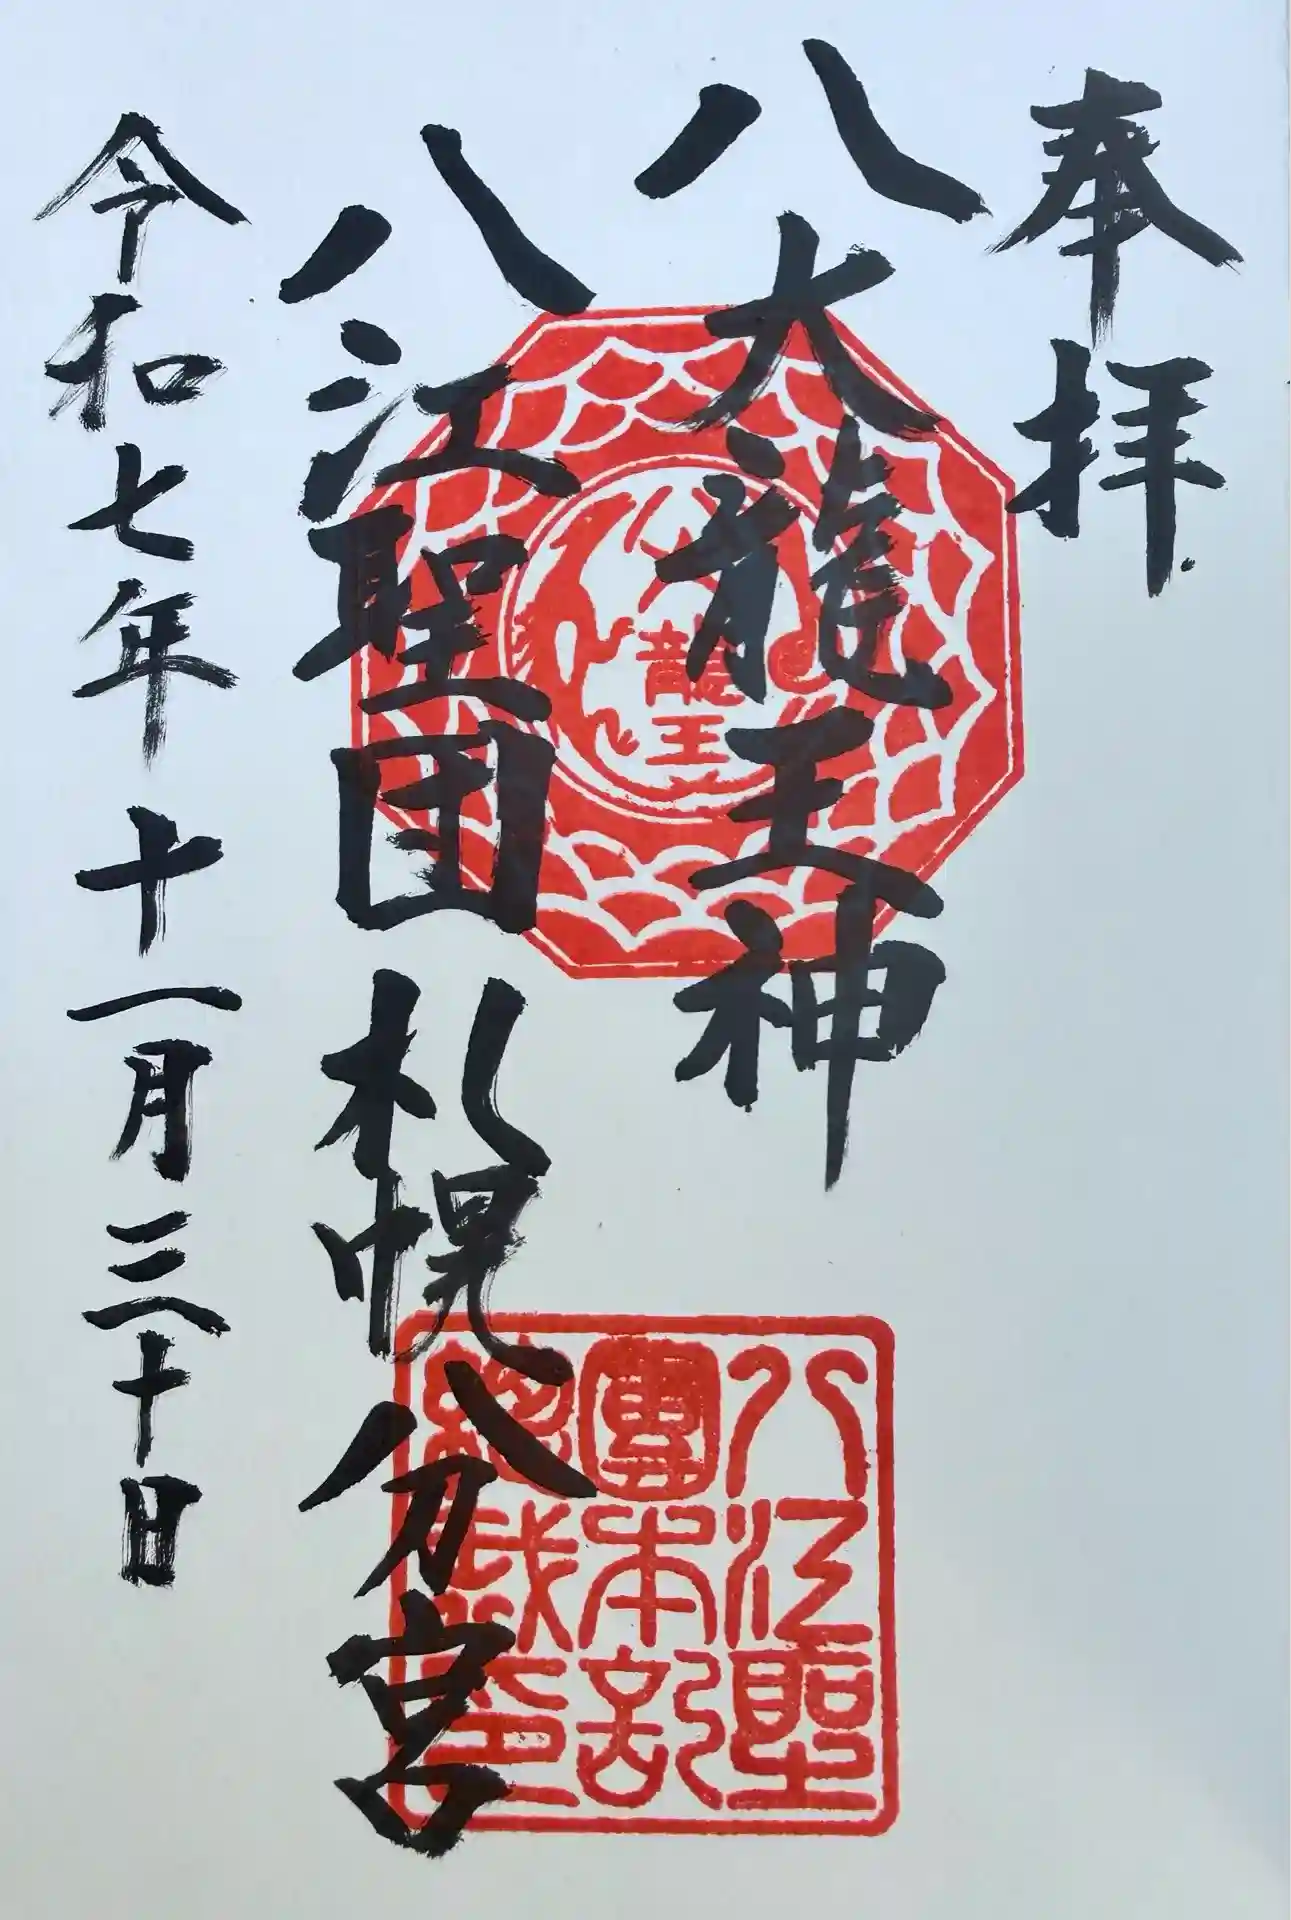 奉拝
八大龍王神
八江聖団 札幌分宮
令和七年十一月三十日
八大龍王
八江聖
團本部
總裁印